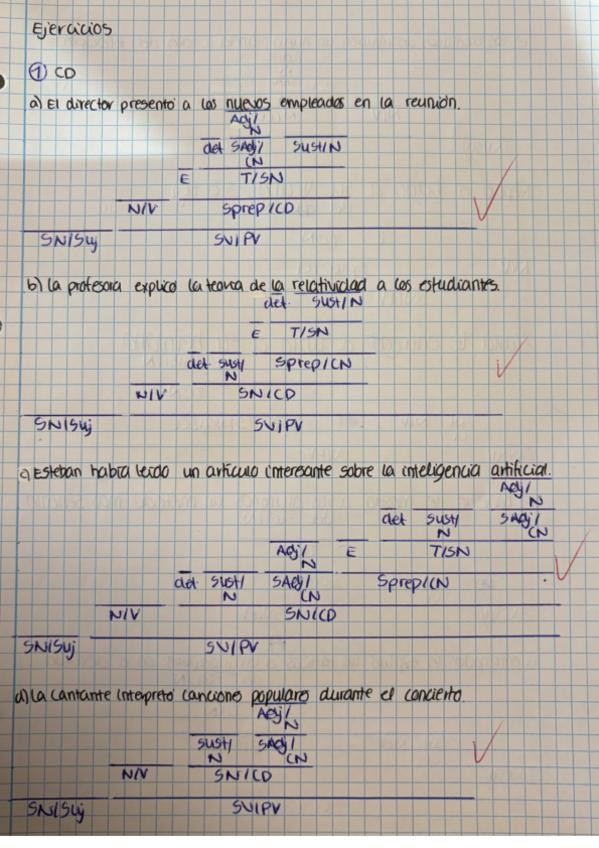 Ejercicios
① CD
a) El director presentó a los nuevos empleados en la reunión.
Adj/N
det SAdj/CN Sust/N
E T/SN
N/V Sprep/CD
SN/Suj SV/PV
b) La profesora explicó la teoría de la relatividad a los estudiantes.
det. Sust/N
E T/SN
det Sust/N Sprep/CN
N/V SN/CD
SN/Suj SV/PV
c) Esteban había leído un artículo interesante sobre la inteligencia artificial.
Adj/N
det Sust/N SAdj/CN
Adj/N E T/SN
det Sust/N SAdj/CN Sprep/CN
N/V SN/CD
SN/Suj SV/PV
d) La cantante interpretó canciones populares durante el concierto.
Adj/N
Sust/N SAdj/CN
N/V SN/CD
SN/Suj SV/PV